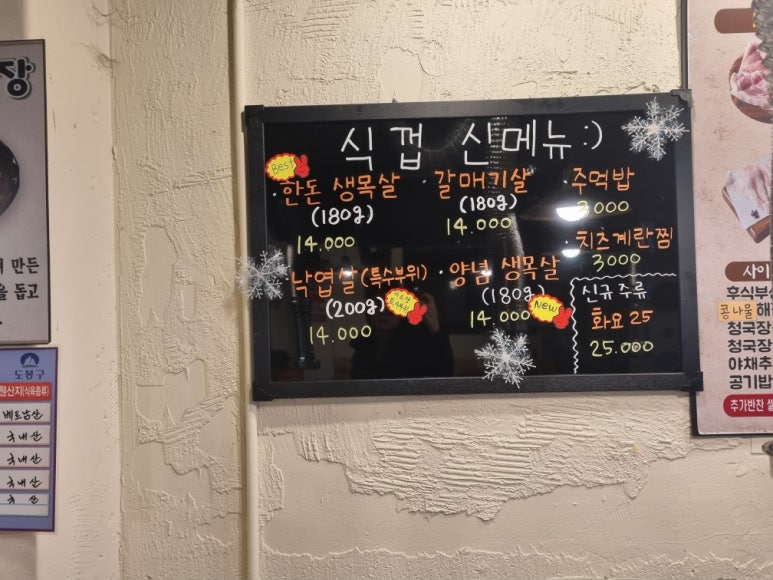 장
식껍 신메뉴:)
Best
· 한돈 생목살
(180g)
14.000
· 갈매기살
(180g)
14.000
· 주먹밥
3000
· 치즈계란찜
3000
· 낙엽살(특수부위)
(200g)
14.000
· 양념 생목살
(180g)
14.000
New
신규주류
화요 25
25.000
만든
을 돕고
도봉구
원산지(식육종류)
베트남산
국내산
국내산
국내산
국 산
사이
후식부
콩나물 해
청국장
청국장
야채추
공기밥
추가반찬 셀